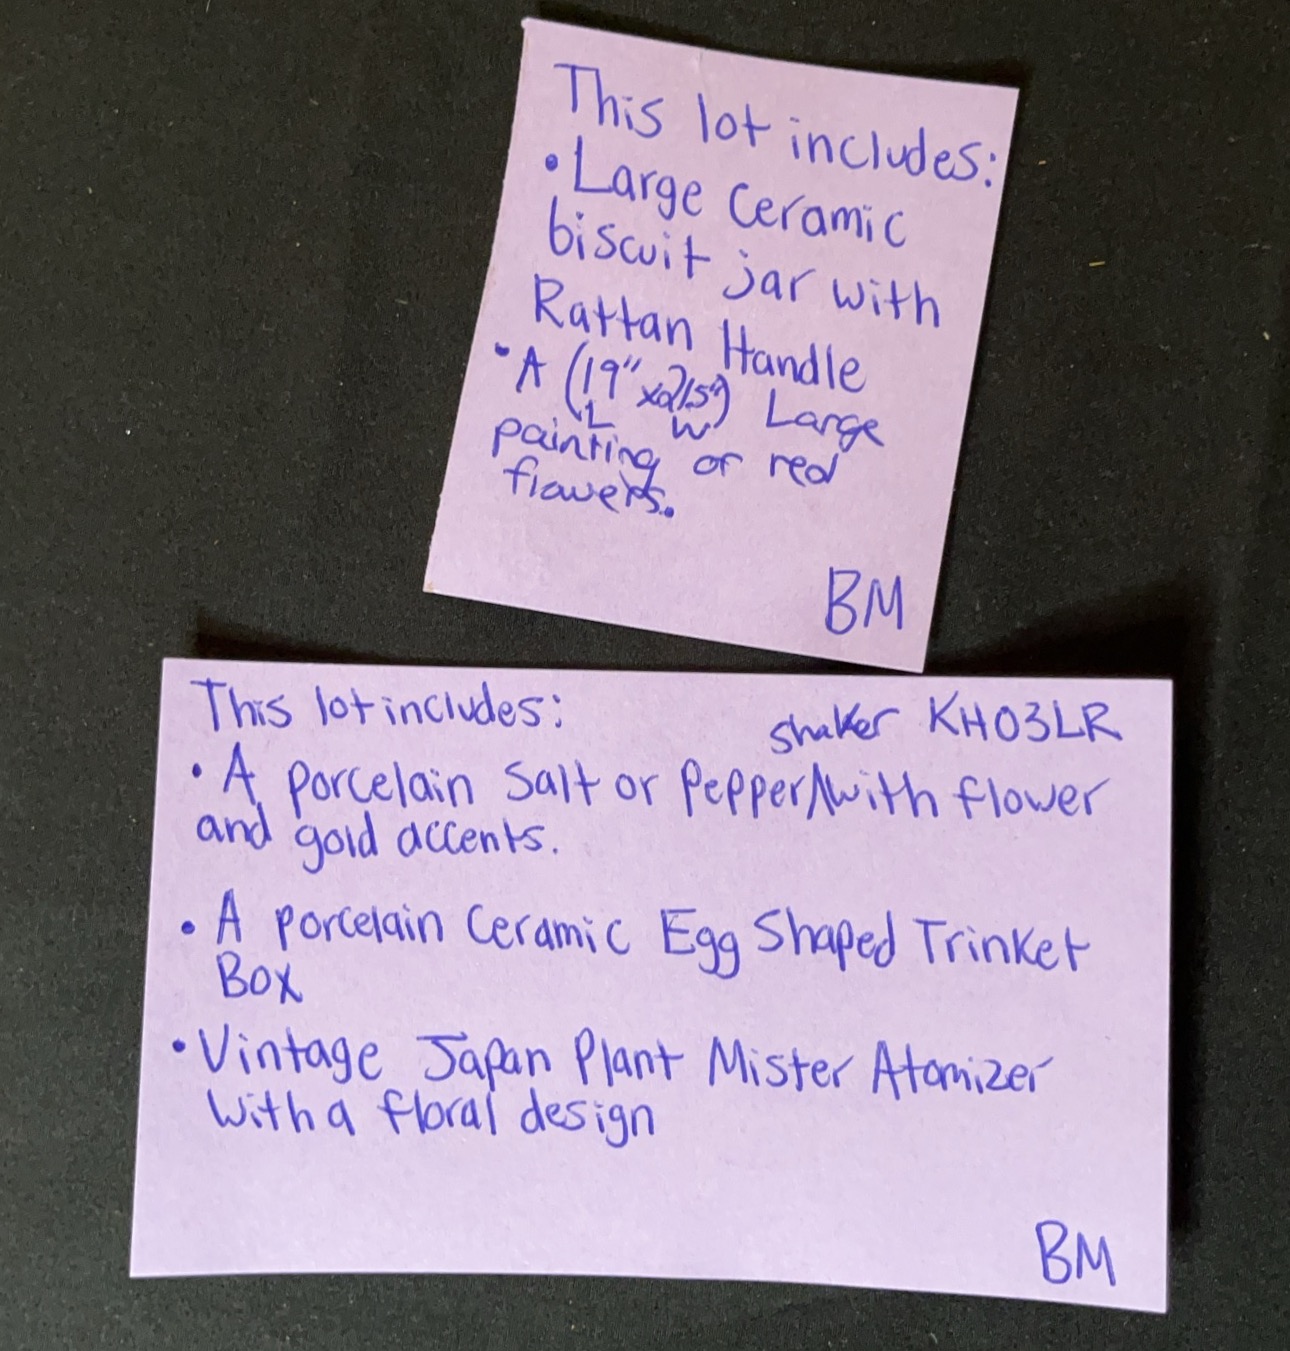 This lot includes:
• Large Ceramic
biscuit jar with
Rattan Handle
• A (19" x 21.5") Large
L W
painting of red
flowers.
BM
This lot includes: shaker KH03LR
• A porcelain Salt or Pepper/\with flower
and gold accents.
• A porcelain Ceramic Egg Shaped Trinket
Box
• Vintage Japan Plant Mister Atomizer
with a floral design
BM